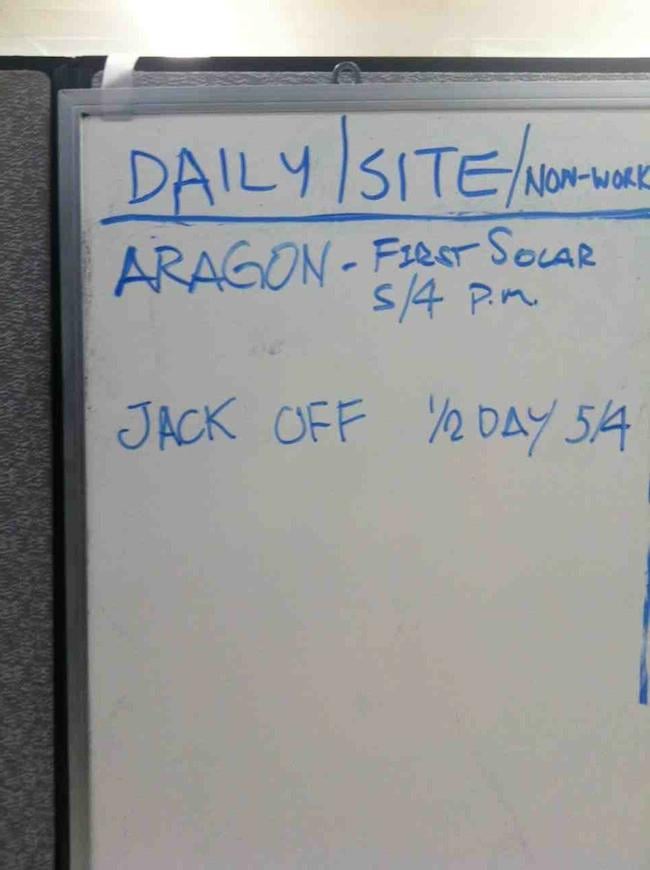 DAILY/SITE/NON-WORK
ARAGON - FIRST SOLAR
5/4 P.M.
JACK OFF 1/2 DAY 5/4